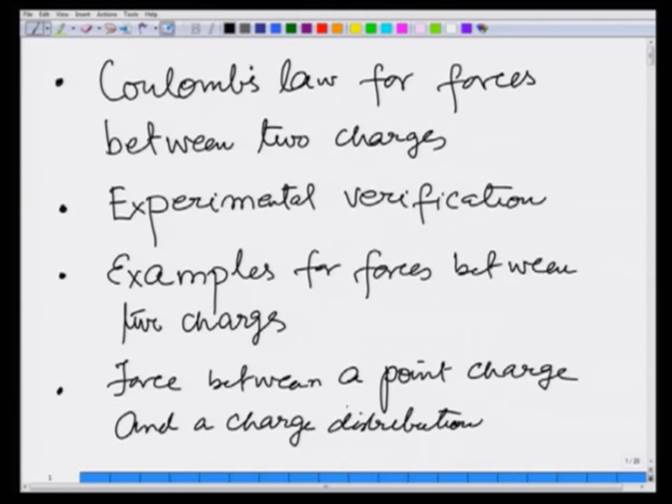 File Edit View Insert Actions Tools Help
• Coulomb's law for forces
between two charges
• Experimental verification
• Examples for forces between
two charges
• Force between a point charge
and a charge distribution
1 / 20
1